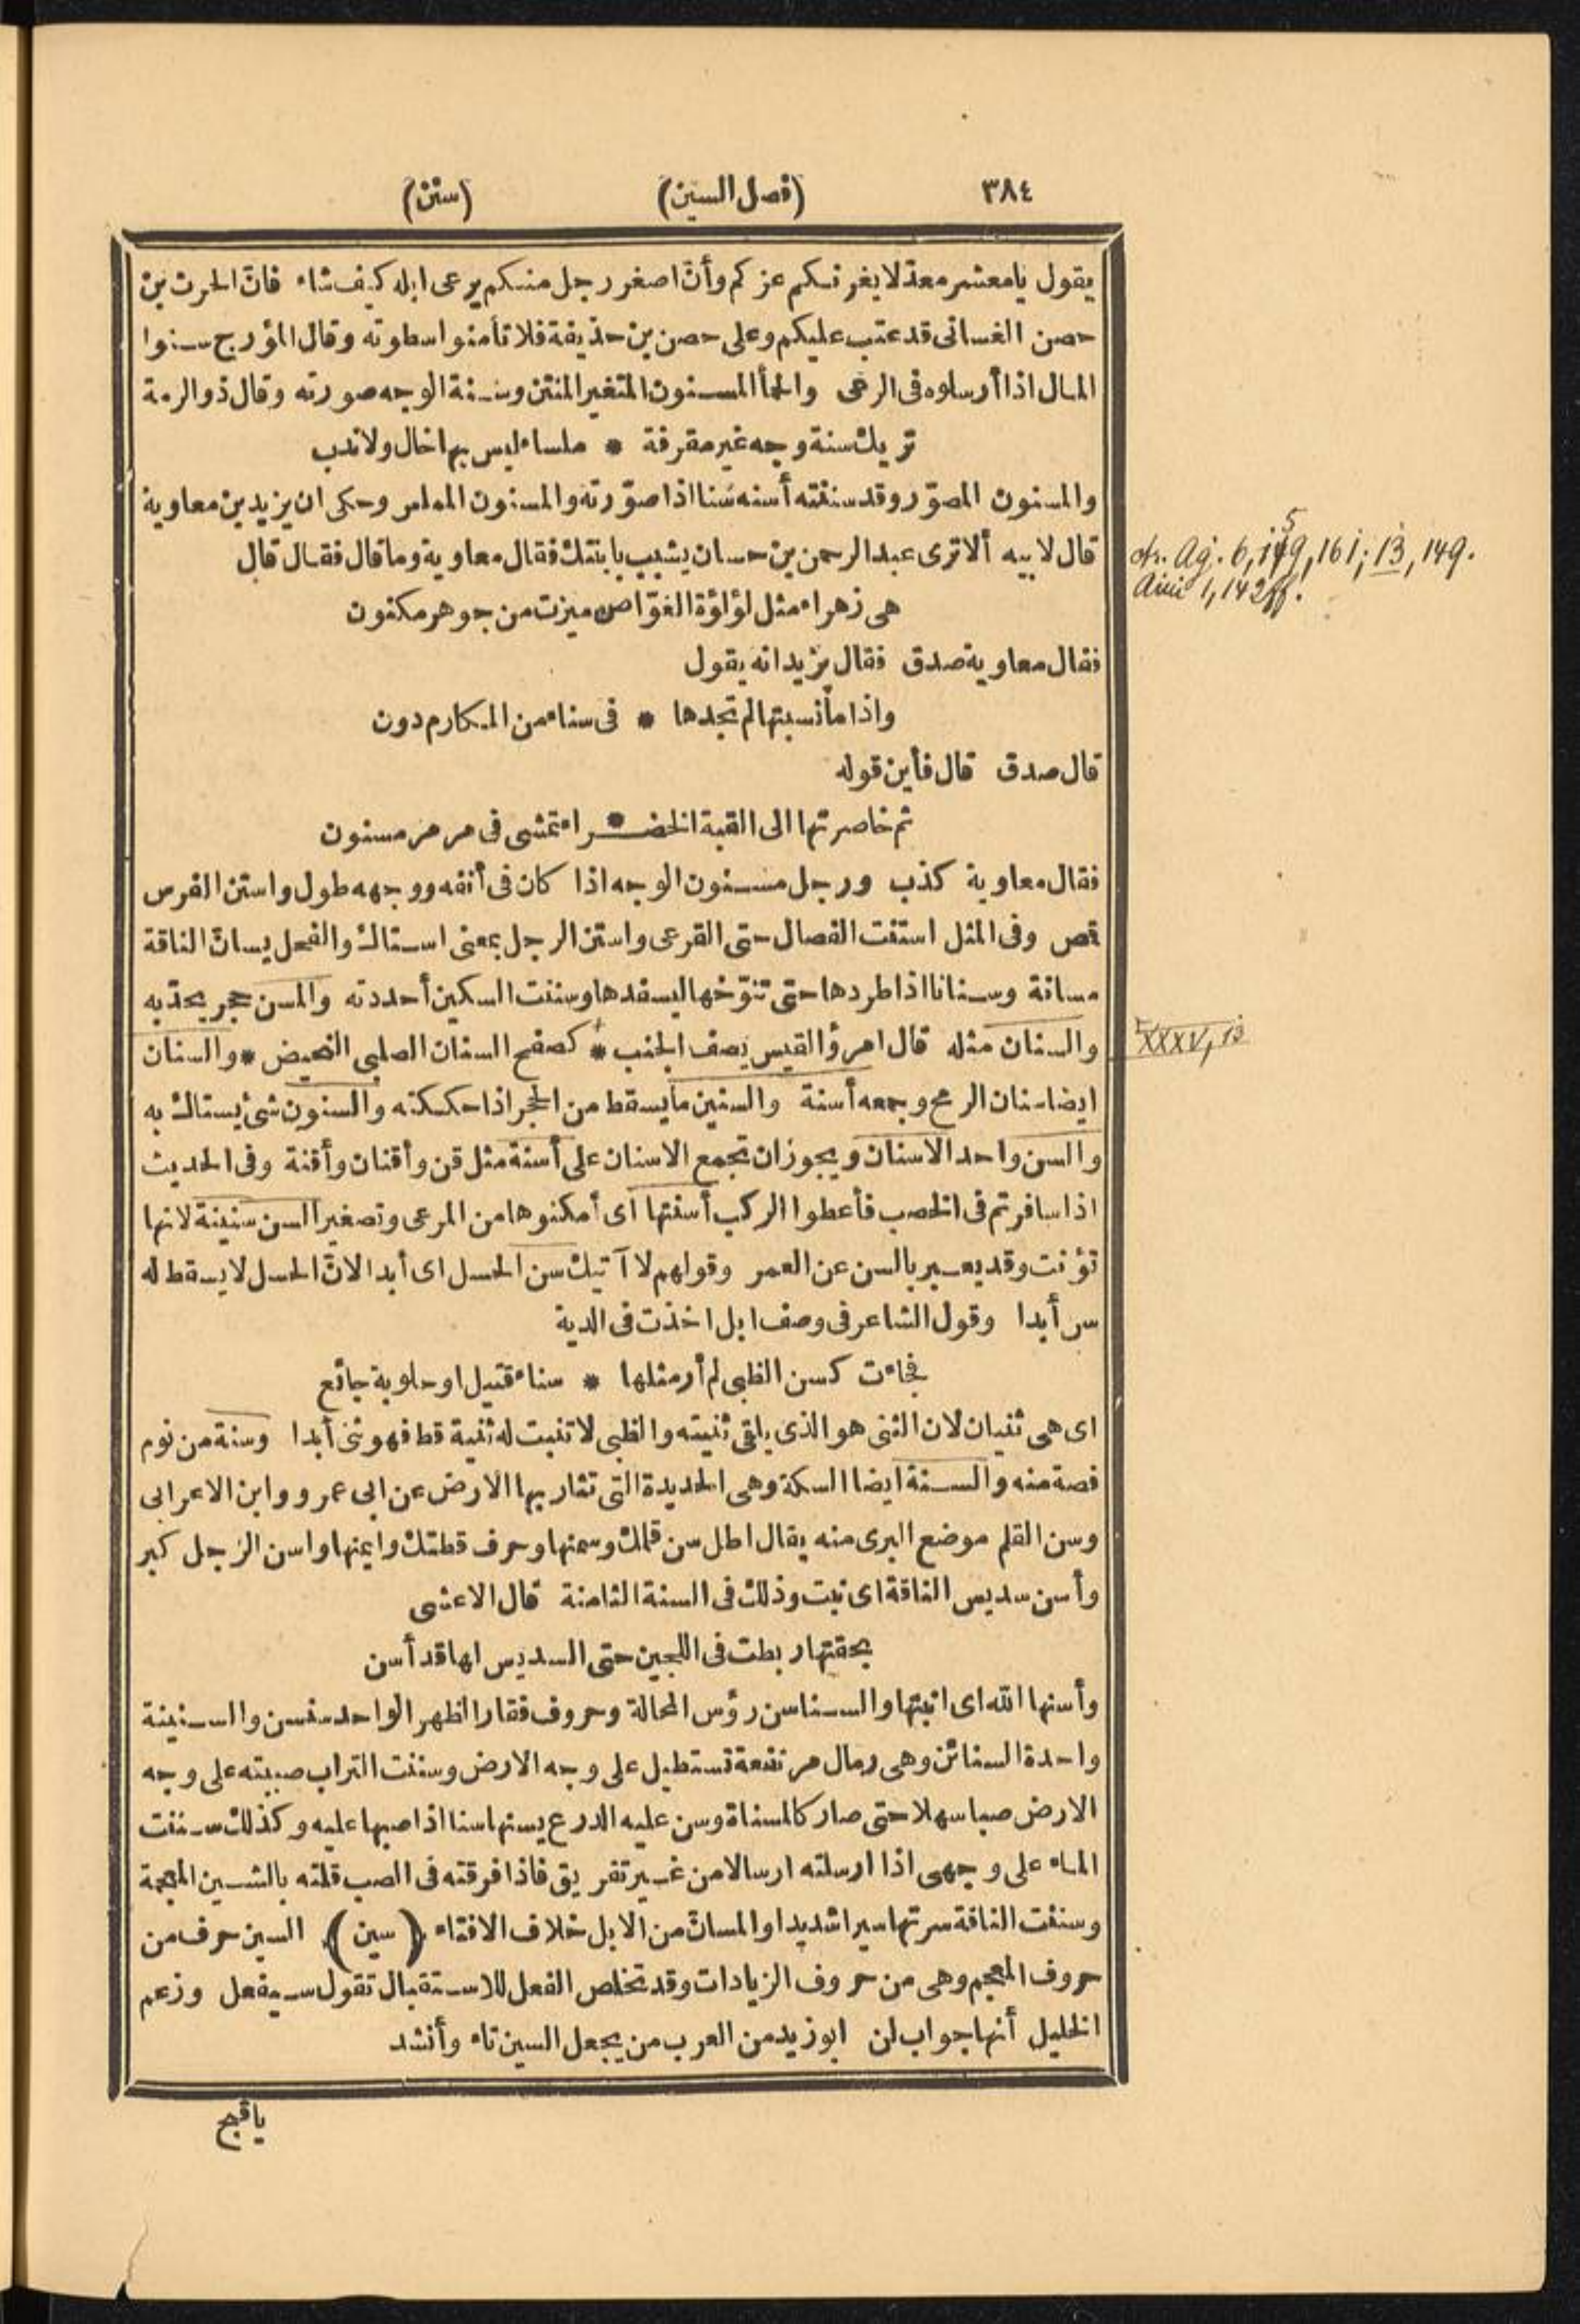 ٣٨٤ (فصل السين) (سنن)
يقول يا معشر معدّ لا يغرنكم عزكم وأنّ اصغر رجل منكم يرعى ابله كيف شاء فانّ الحرث بن
حصن الغسانى قد عتب عليكم وعلى حصن بن حذيفة فلا تأمنوا سطوته وقال المؤرج سنوا
المال اذا أرسلوه فى الرعى والحمأ المسنون المتغير المنتن وسنة الوجه صورته وقال ذو الرمة
تريك سنة وجه غير مقرفة * ملساء ليس بها خال ولا ندب
والمسنون المصوّر وقد سننته أسنه سَنا اذا صوّرته والمسنون المملس وحكى ان يزيد بن معاوية
قال لابيه ألا ترى عبد الرحمن بن حسان يشبب بابنتك فقال معاوية وما قال فقال قال
هى زهراء مثل لؤلؤة الغوّاص ميزت من جوهر مكنون
فقال معاوية صدق فقال يزيد انه يقول
واذا ما نسبتها لم تجدها * فى سناء من المكارم دون
قال صدق قال فأين قوله
ثم خاصرتها الى القبة الخضـراء تمشى فى مرمر مسنون
فقال معاوية كذب ورجل مسنون الوجه اذا كان فى أنفه ووجهه طول واستن الفرس
قمص وفى المثل استنت الفصال حتى القرعى واستن الرجل بمعنى استاك والفحل يسانّ الناقة
مسانة وسنانا اذا طردها حتى تنوّخها ليسفدها وسننت السكين أحددته والمسن حجر يحدّ به
والسنان مثله قال امرؤ القيس يصف الجنب * كصفح السنان الصلبى النحيض * والسنان
ايضا سنان الرمح وجمعه أسنة والسنين ما يسقط من الحجر اذا حككته والسنون شئ يستاك به
والسن واحد الاسنان ويجوز ان تجمع الاسنان على أسنة مثل قن وأقنان وأقنة وفى الحديث
اذا سافرتم فى الخصب فأعطوا الركب أسنتها اى أمكنوها من المرعى وتصغير السن سنينة لانها
تؤنث وقد يعبر بالسن عن العمر وقولهم لا آتيك سن الحسل اى أبدا لانّ الحسل لا يسقط له
سن أبدا وقول الشاعر فى وصف ابل اخذت فى الدية
فجاءت كسن الظبى لم أر مثلها * سناء قتيل او حلوبة جائع
اى هى ثنيان لان الثنى هو الذى يلقى ثنيته والظبى لا تنبت له ثنية قط فهو ثنى أبدا وسنة من نوم
فصة منه والسنة ايضا السكة وهى الحديدة التى تثار بها الارض عن ابى عمرو وابن الاعرابى
وسن القلم موضع البرى منه يقال اطل سن قلمك وسمنها وحرف قطتك وايمنها واسن الرجل كبر
وأسن سديس الناقة اى نبت وذلك فى السنة الثامنة قال الاعشى
بحقتها ربطت فى اللجين حتى السديس لها قد أسن
وأسنها الله اى انبتها والسناسن رؤس المحالة وحروف فقار الظهر الواحد سنسن والسنينة
واحدة السنائن وهى رمال مرتفعة تستطيل على وجه الارض وسننت التراب صببته على وجه
الارض صبا سهلا حتى صار كالمسناة وسن عليه الدرع يسنها سنا اذا صبها عليه وكذلك سننت
الماء على وجهى اذا ارسلته ارسالا من غير تفريق فاذا فرقته فى الصب قلته بالشين المعجمة
وسننت الناقة سرتها سيرا شديدا والمسانّ من الابل خلاف الافتاء (سين) السين حرف من
حروف المعجم وهى من حروف الزيادات وقد تخلص الفعل للاستقبال تقول سيفعل وزعم
الخليل أنها جواب لن ابو زيد من العرب من يجعل السين تاء وأنشد
يا قبح
Ag. 6, 159, 161; 13, 149.
1, 142 ff.
XXXV, 13